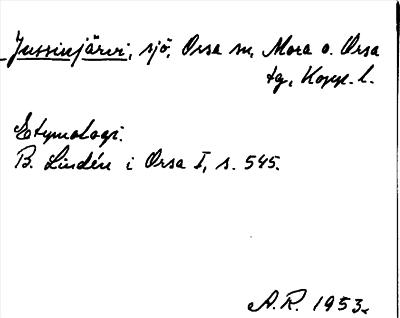 Jussinjärvi, sjö, Orsa sn, Mora o. Orsa
tg, Kopp. l.
Etymologi.
B. Lindén i Orsa I, s. 545.
A.R. 1953.